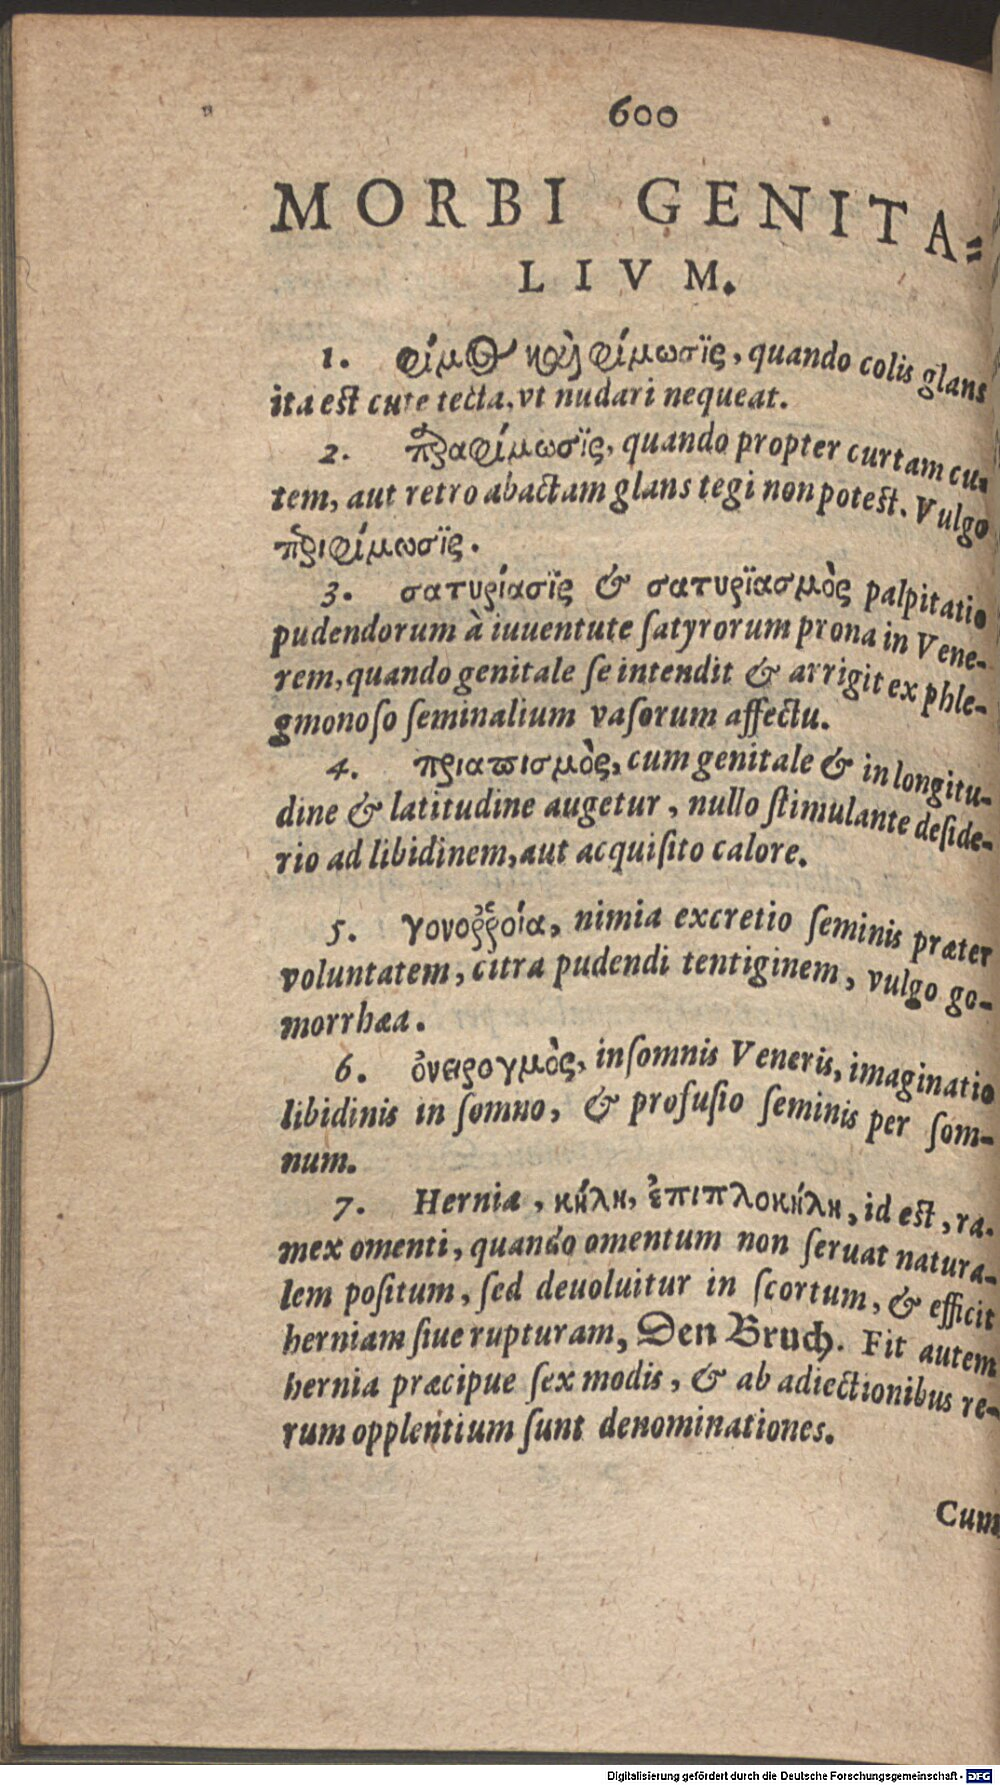 600
MORBI GENITA=
LIVM.
1. φίμος καὶ φίμωσϊς, quando colis glans
ita est cute tecta, vt nudari nequeat.
2. παραφίμωσϊς, quando propter curtam cu-
tem, aut retro abactam glans tegi non potest. Vulgo
περιφίμωσϊς.
3. σατυρίασϊς & σατυρϊασμὸς palpitatio
pudendorum à iuuentute ſatyrorum prona in Vene-
rem, quando genitale ſe intendit & arrigit ex phle-
gmonoſo ſeminalium vaſorum affectu.
4. πριαπισμὸς, cum genitale & in longitu-
dine & latitudine augetur, nullo ſtimulante deſide-
rio ad libidinem, aut acquiſito calore.
5. γονοῤῥοία, nimia excretio ſeminis præter
voluntatem, citra pudendi tentiginem, vulgo go-
morrhæa.
6. ὀνειρογμὸς, inſomnis Veneris, imaginatio
libidinis in ſomno, & profuſio ſeminis per ſom-
num.
7. Herniæ, κήλη, ἐπιπλοκήλη, id est, ra-
mex omenti, quando omentum non ſeruat natura-
lem poſitum, ſed deuoluitur in ſcortum, & efficit
herniam ſiue rupturam, Den Bruch. Fit autem
hernia præcipue ſex modis, & ab adiectionibus re-
rum opplentium ſunt denominationes.
Cum
Digitalisierung gefördert durch die Deutsche Forschungsgemeinschaft - DFG